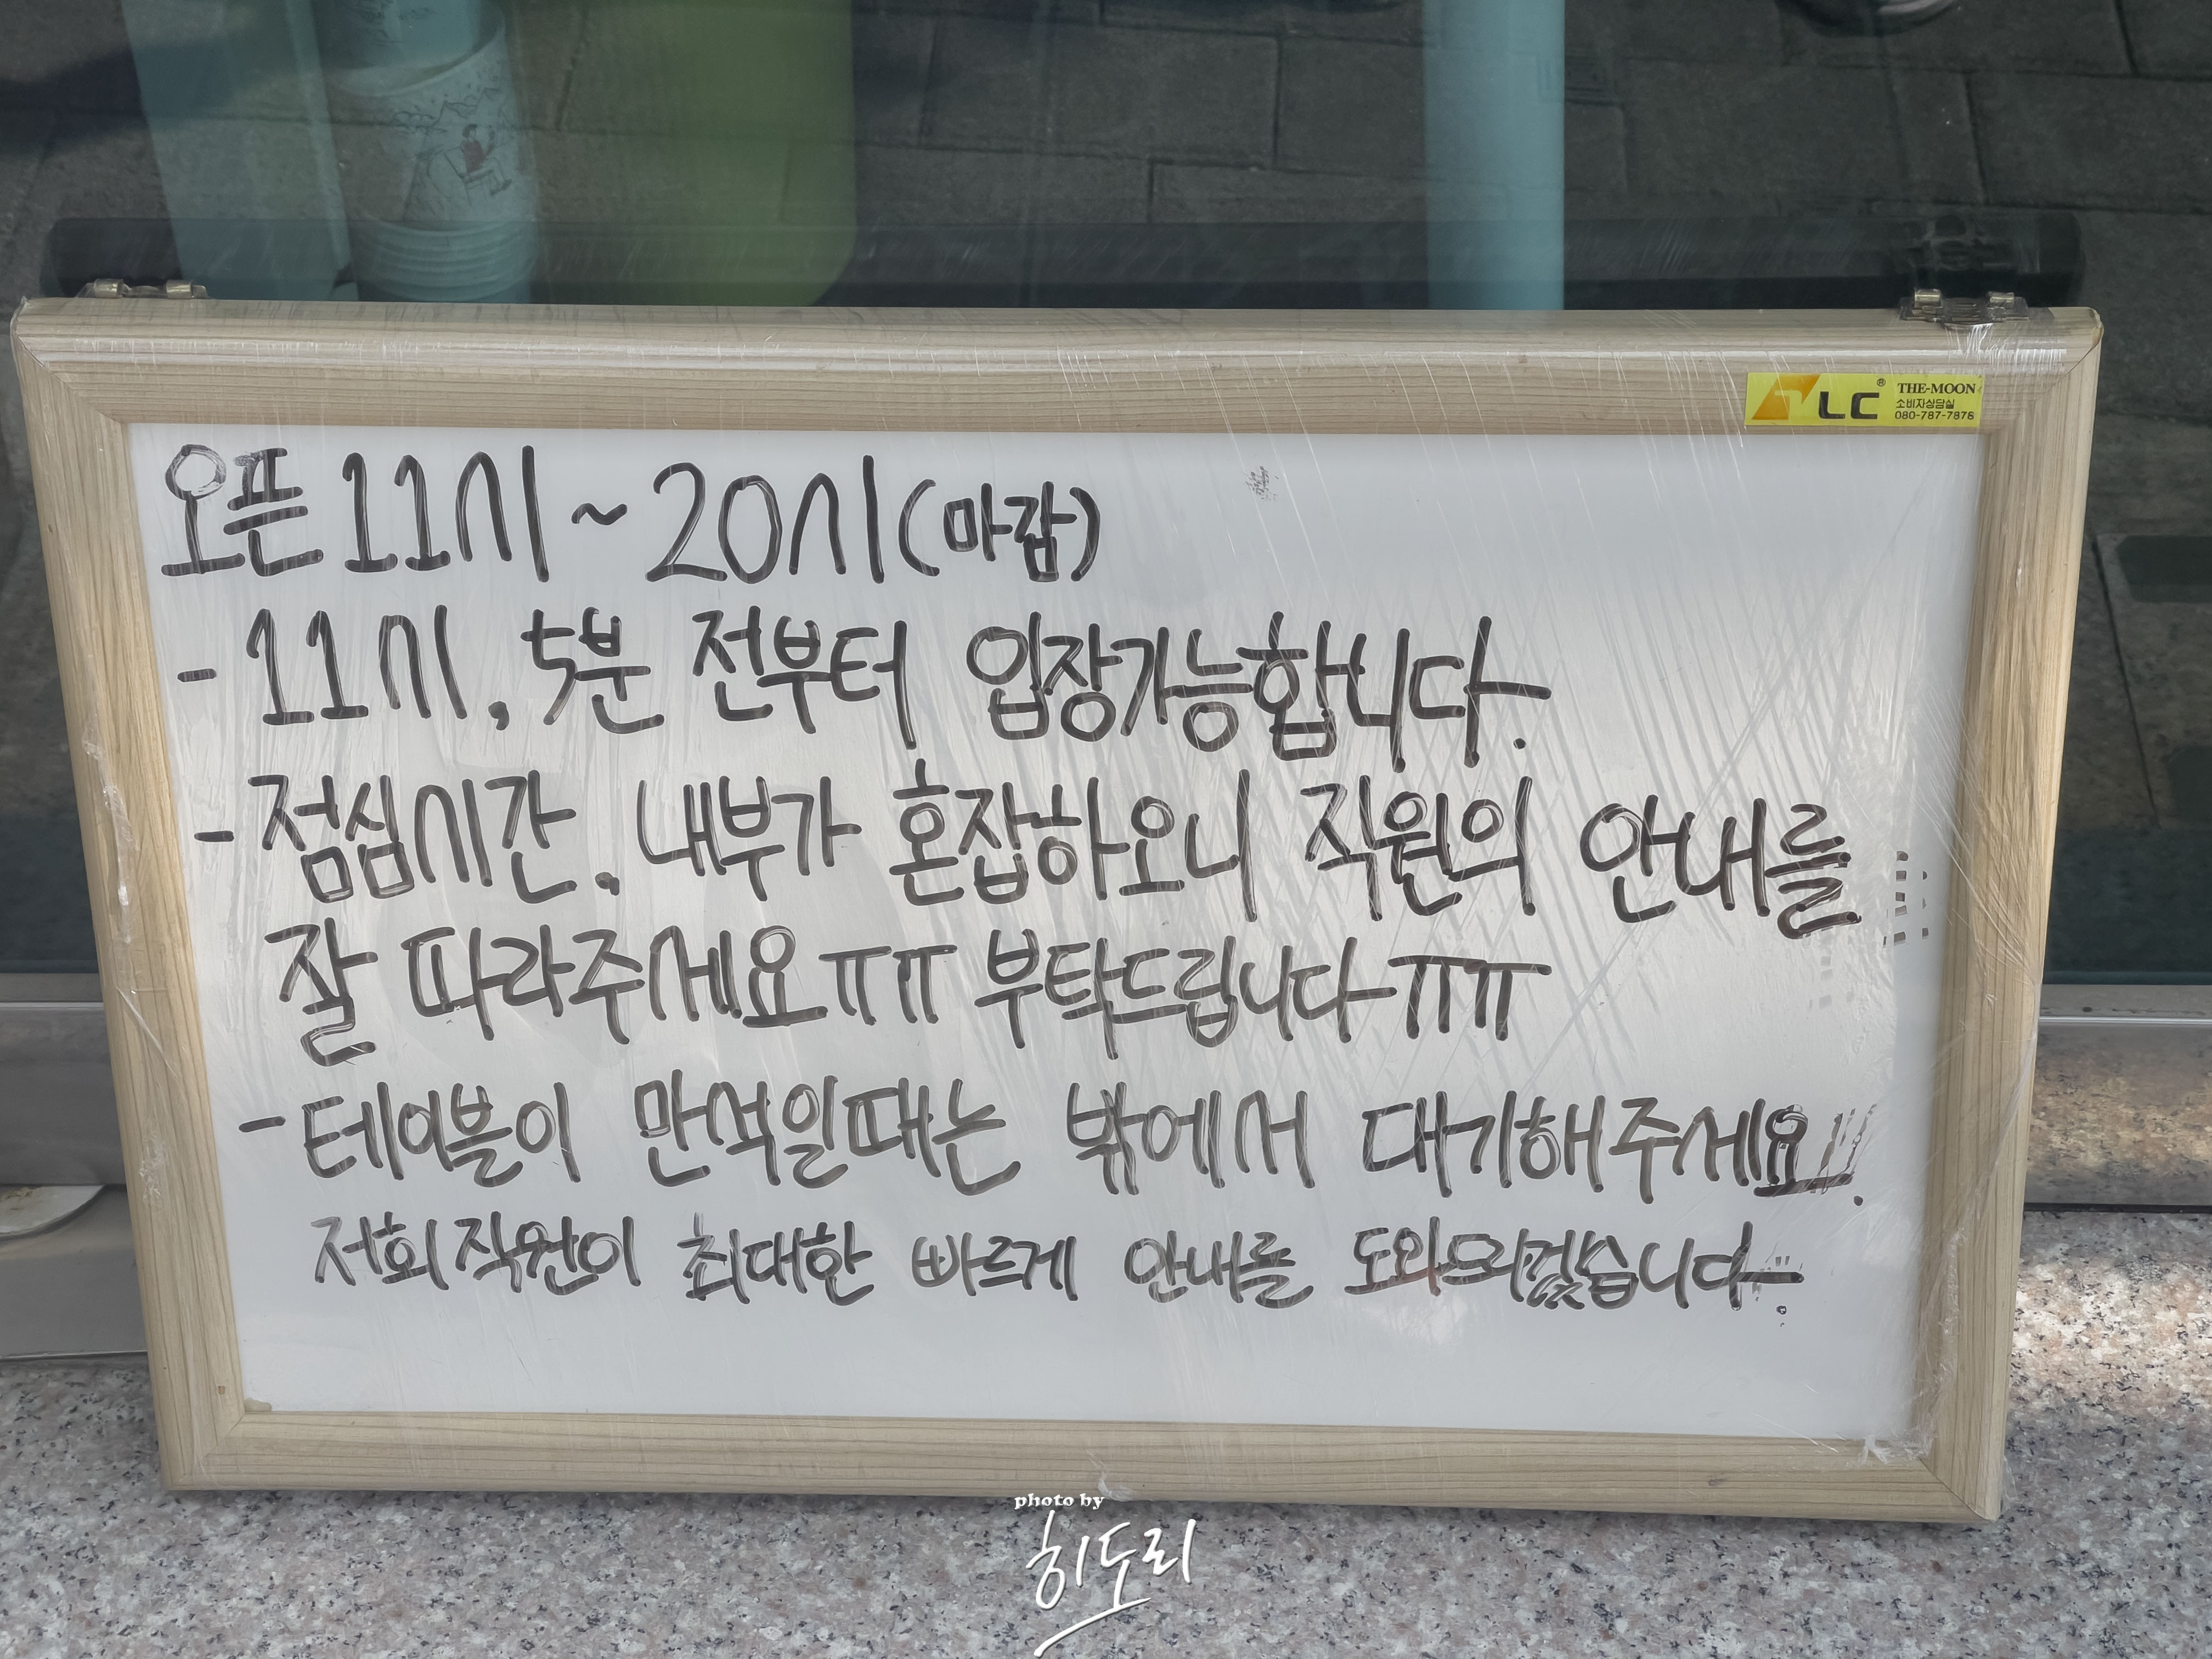 LC® THE-MOON
소비자상담실
080-787-7878
오픈 11시 ~ 20시 (마감)
- 11시, 5분 전부터 입장가능합니다.
- 점심시간, 내부가 혼잡하오니 직원의 안내를
잘 따라주세요ㅠㅠ 부탁드립니다ㅠㅠ
- 테이블이 만석일때는 밖에서 대기해주세요!!.
저희직원이 최대한 빠르게 안내를 도와드리겠습니다.
photo by
히도리